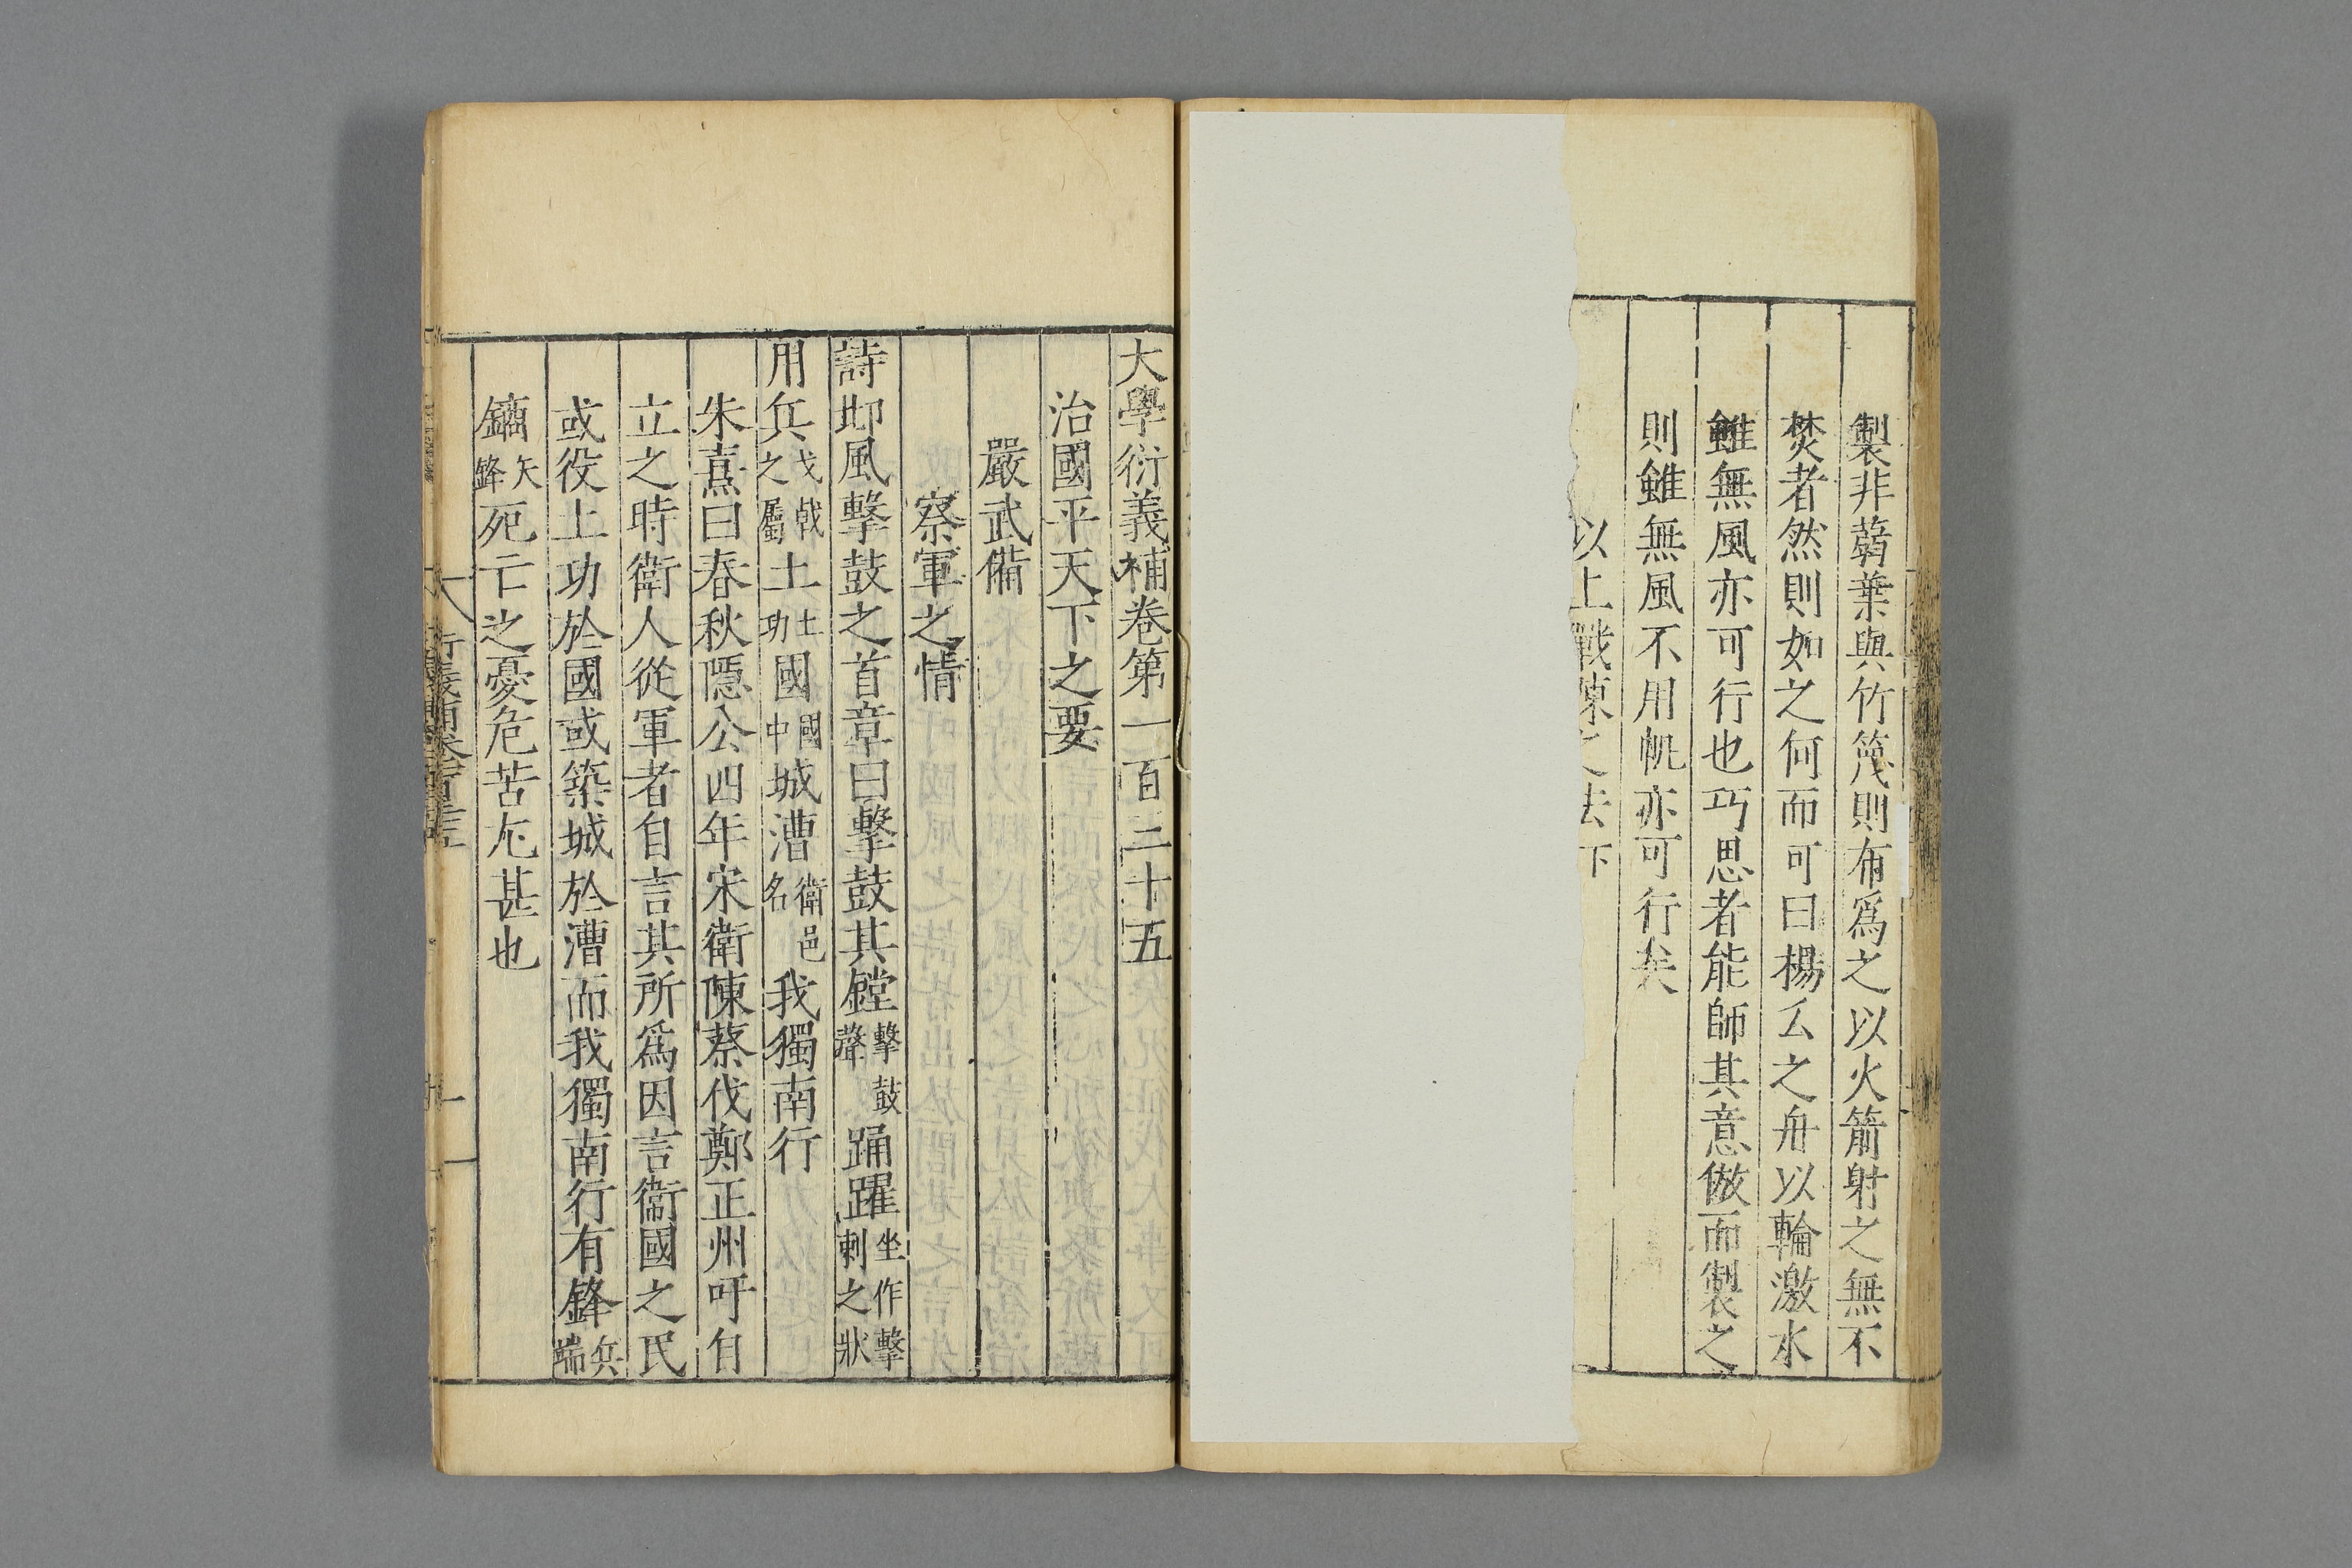 製非蒻葉與竹篾則布為之以火箭射之無不
焚者然則如之何而可曰楊么之舟以輪激水
雖無風亦可行也巧思者能師其意倣而製之
則雖無風不用帆亦可行矣
以上戰陳之法下
大學衍義補卷第一百三十五
治國平天下之要
嚴武備
察軍之情
詩邶風擊鼓之首章曰擊鼓其鏜擊鼓聲踊躍坐作擊刺之狀
用兵戈戟之屬土土功國國中城漕衛邑名我獨南行
朱熹曰春秋隱公四年宋衛陳蔡伐鄭正州吁自
立之時衛人從軍者自言其所為因言衛國之民
或役土功於國或築城於漕而我獨南行有鋒兵端
鏑矢鋒死亡之憂危苦尤甚也